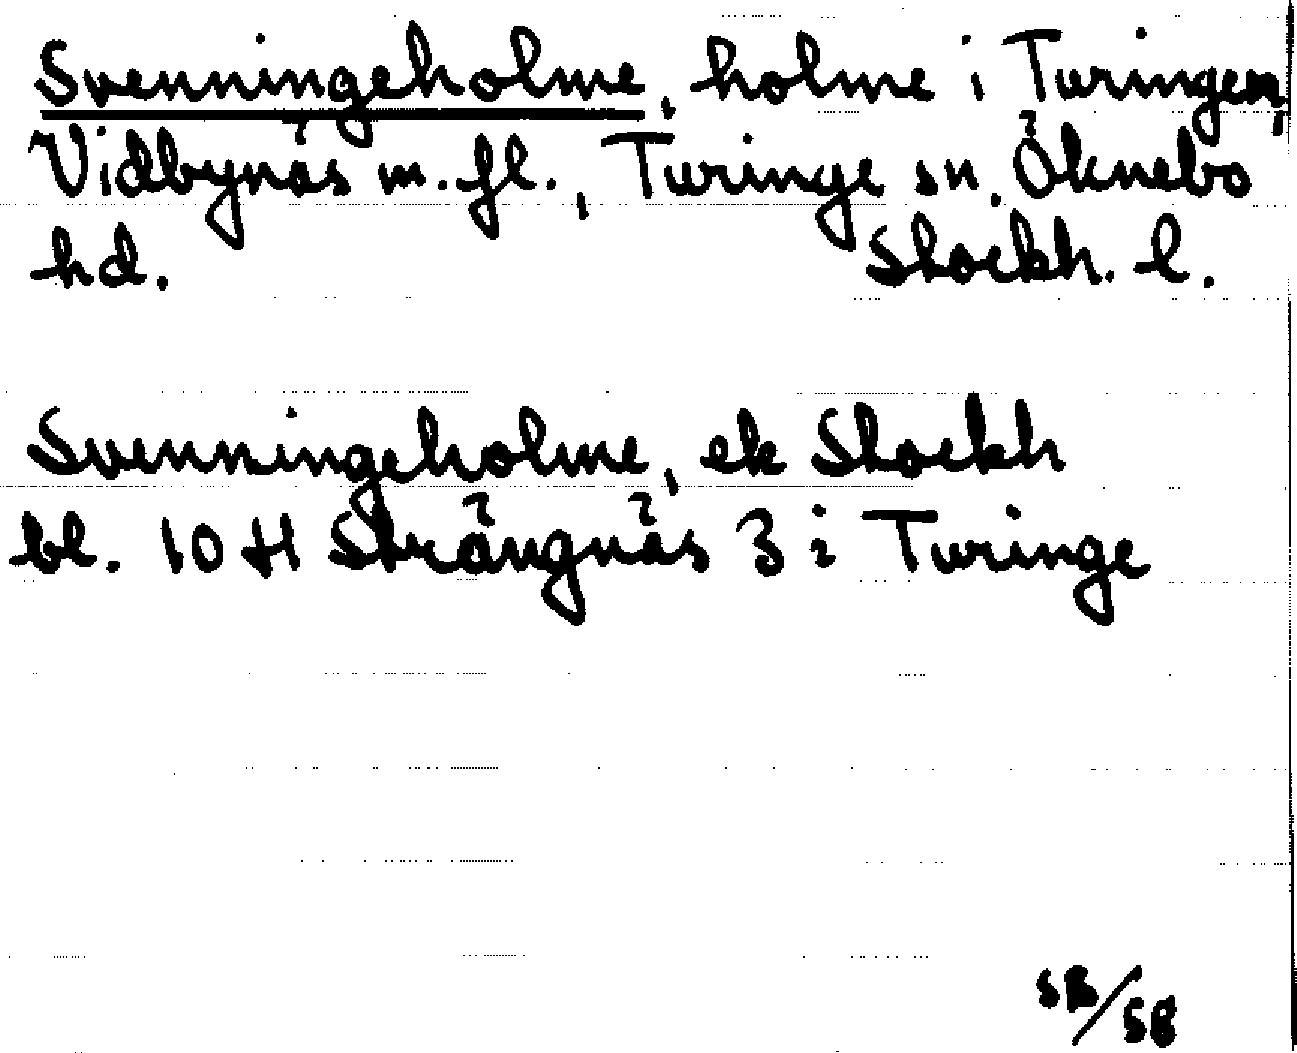 Svenningeholme, holme i Turingen,
Vidbynäs m.fl., Turinge sn, Öknebo
hd. Stockh. l.
Svenningeholme, ek Stockh
bl. 10 H Strängnäs 3 i Turinge
SB/58